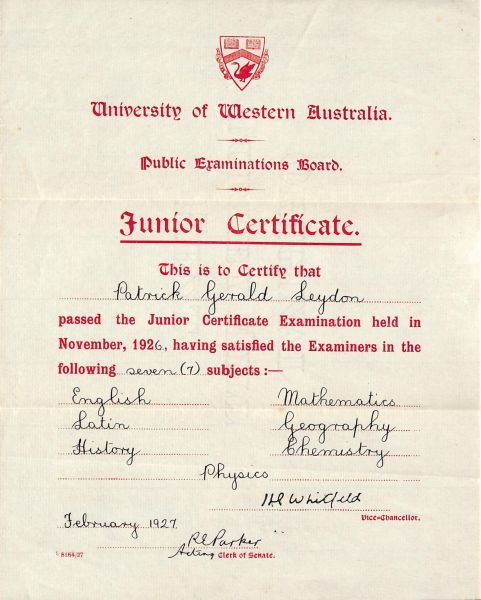 University of Western Australia.
Public Examinations Board.
Junior Certificate.
This is to Certify that
Patrick Gerald Leydon
passed the Junior Certificate Examination held in
November, 1926, having satisfied the Examiners in the
following seven (7) subjects :—
English Mathematics
Latin Geography
History Chemistry
Physics
H E Whitfeld
Vice-Chancellor.
February 1927.
R E Parker
Acting Clerk of Senate.
8164/27